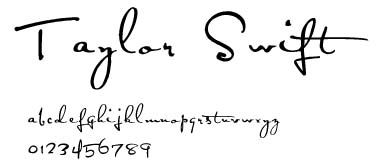 Taylor Swift
abcdefghijklmnopqrstuvwxyz
0123456789